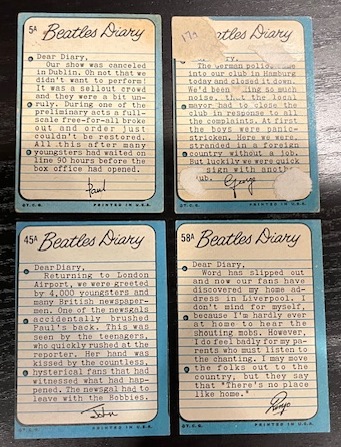 5A Beatles Diary
Dear Diary,
Our show was canceled
in Dublin. Oh not that we
didn't want to perform!
It was a sellout crowd
and they were a bit un-
ruly. During one of the
preliminary acts a full-
scale free-for-all broke
out and order just
couldn't be restored.
All this after many
youngsters had waited on
line 90 hours before the
box office had opened.
Paul
©T.C.G. PRINTED IN U.S.A.
Beatles Diary
Dear Diary,
The German police
into our club in Hamburg
today and closed it down.
We'd been making so much
noise, that the local
mayor had to close the
club in response to all
the complaints. At first
the boys were panic-
stricken. Here we were,
stranded in a foreign
country without a job.
But luckily we were quick
sign with another
George
PRINTED IN U.S.A.
45A Beatles Diary
Dear Diary,
Returning to London
Airport, we were greeted
by 4,000 youngsters and
many British newspaper-
men. One of the newsgals
accidentally brushed
Paul's back. This was
seen by the teenagers,
who quickly rushed at the
reporter. Her hand was
kissed by the countless
hysterical fans that had
witnessed what had hap-
pened. The newsgal had to
leave with the Bobbies.
John
©T.C.G. PRINTED IN U.S.A.
58A Beatles Diary
Dear Diary,
Word has slipped out
and now our fans have
discovered my home ad-
dress in Liverpool. I
don't mind for myself,
because I'm hardly ever
at home to hear the
shouting mobs. However,
I do feel badly for my pa-
rents who must listen to
the chanting. I may move
the folks out to the
country, but they say
that "There's no place
like home."
Ringo
©T.C.G. PRINTED IN U.S.A.